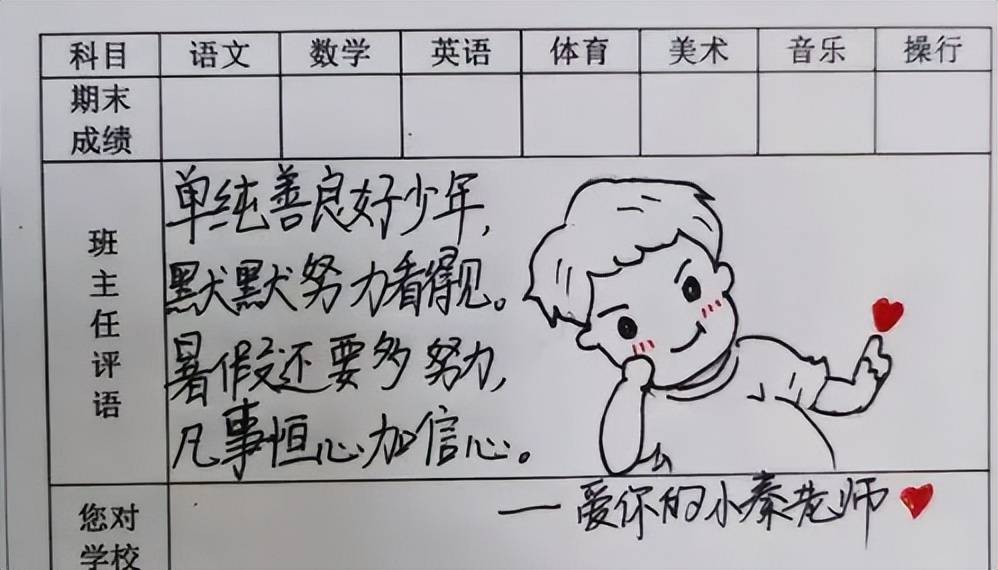 科目 语文 数学 英语 体育 美术 音乐 操行
期末
成绩
班主任评语
单纯善良好少年,
默默努力看得见。
暑假还要多努力,
凡事恒心加信心。
您对
学校
——爱你的小秦老师